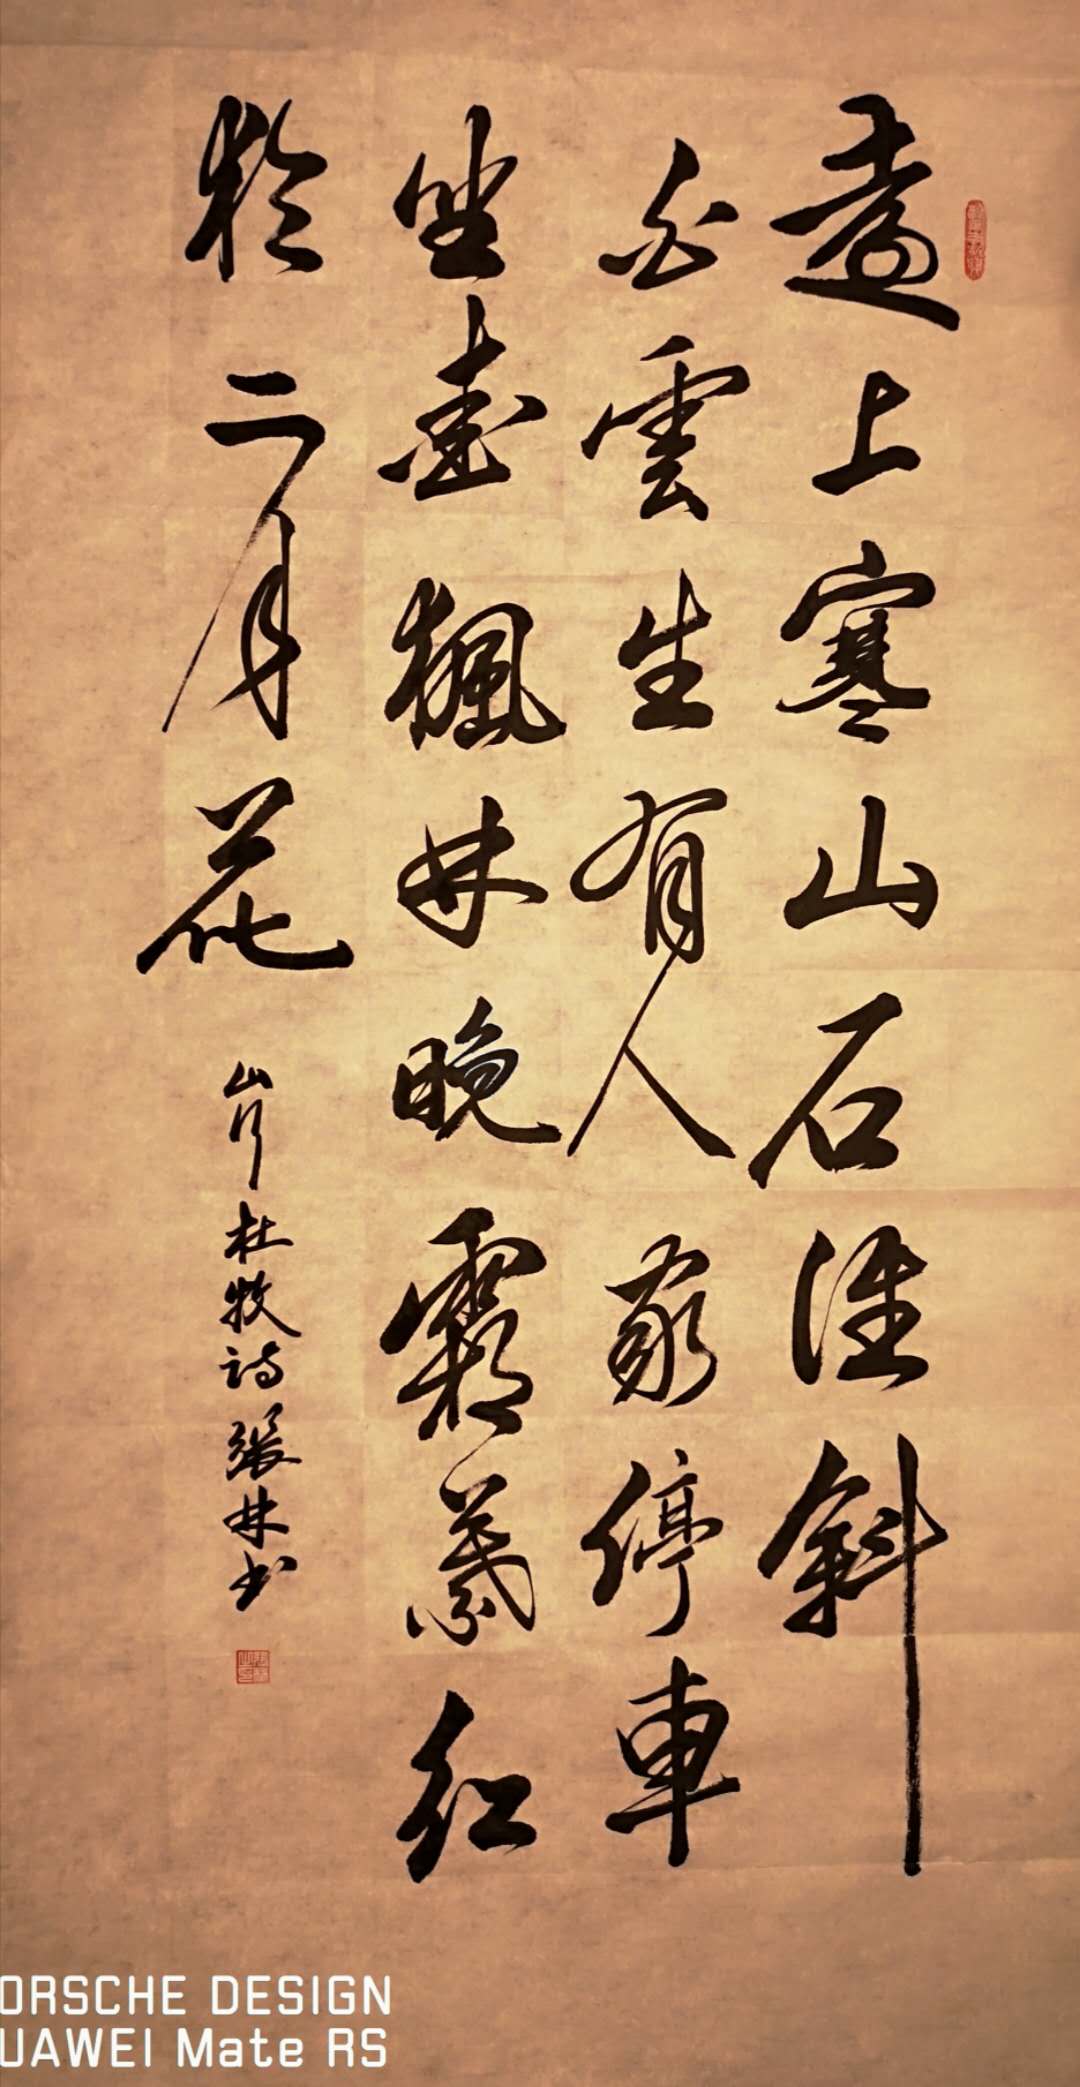 遠上寒山石徑斜
白雲生有人家停車
坐愛楓林晚霜葉紅
於二月花
山行杜牧詩張林書
ORSCHE DESIGN
UAWEI Mate RS